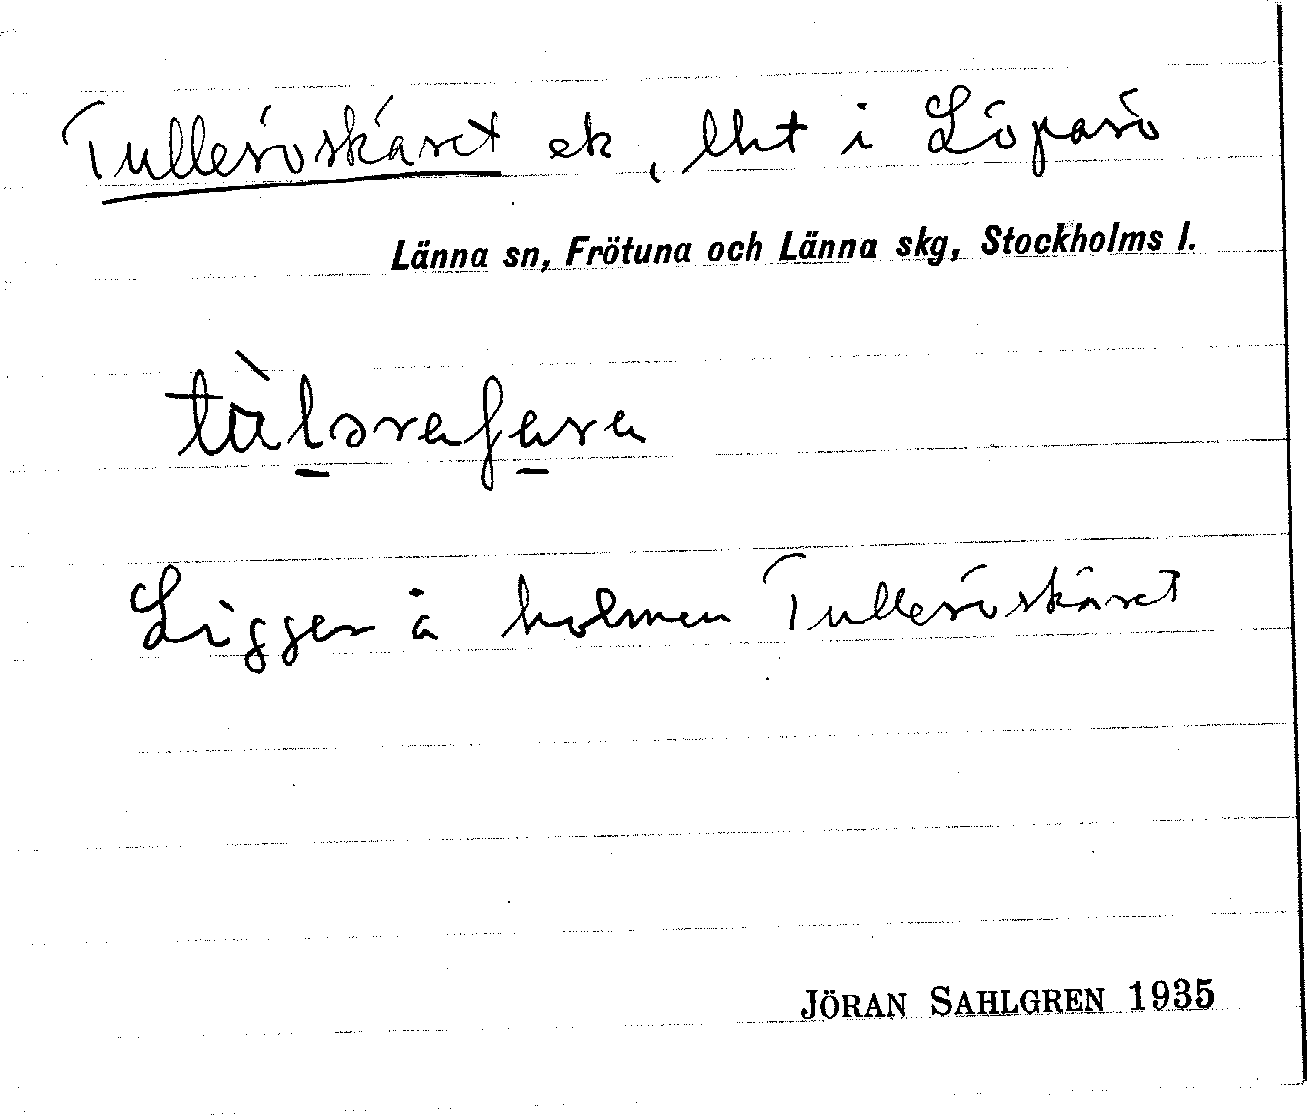 Tulleröskäret ek, lht i Löparö
Länna sn, Frötuna och Länna skg, Stockholms l.
Ligger å holmen Tulleröskäret
JÖRAN SAHLGREN 1935